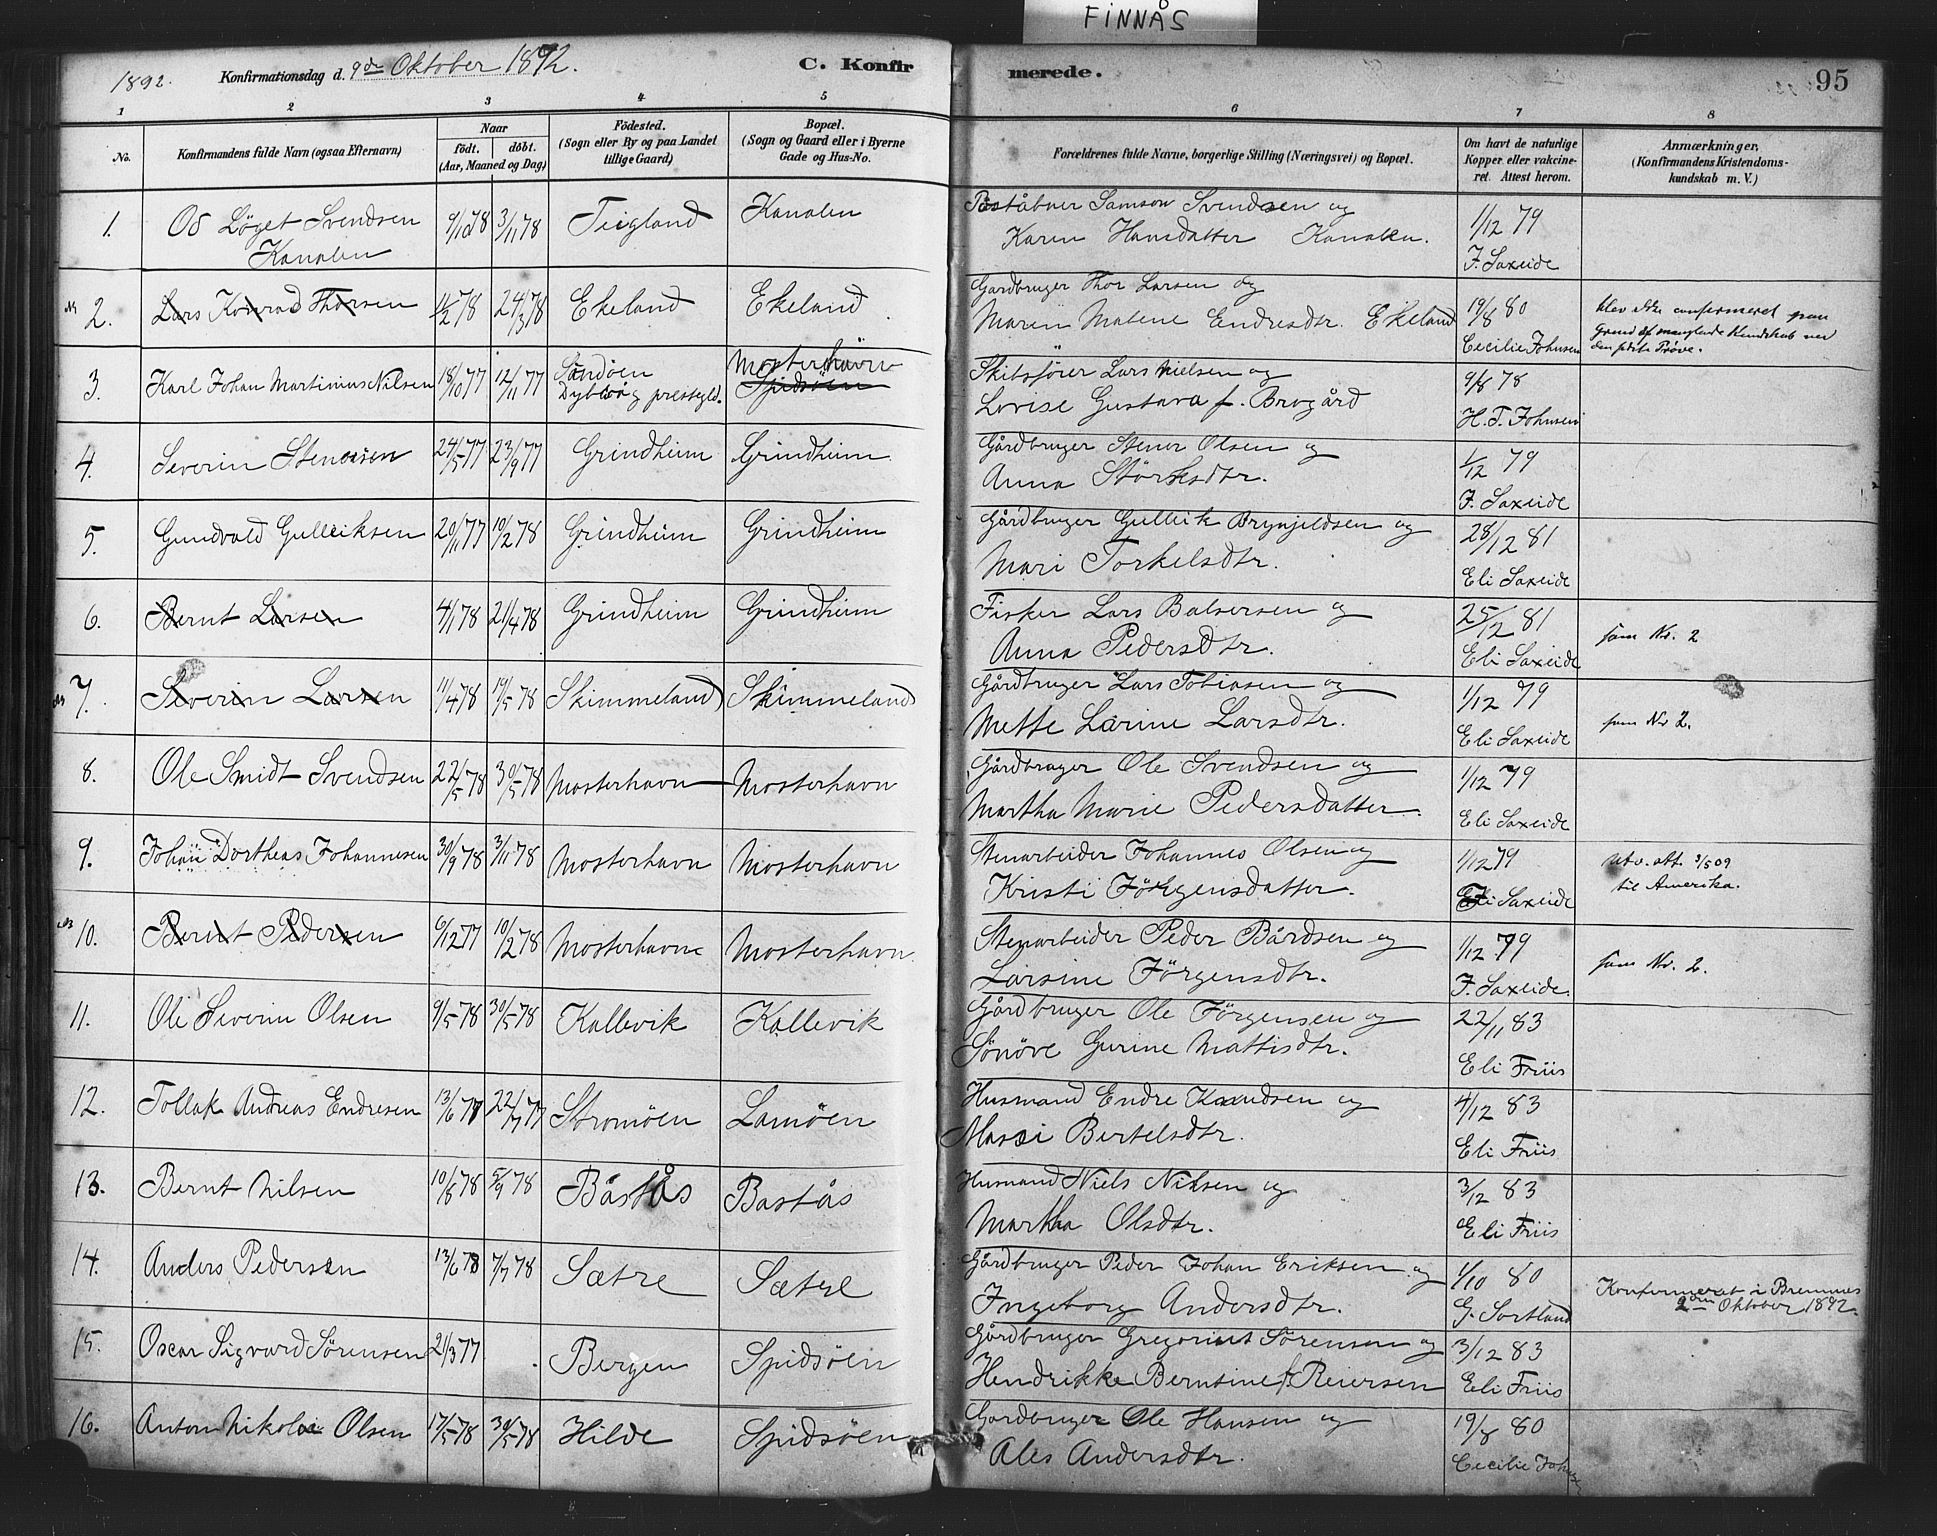 FINNÅS
1892. Konfirmationsdag d. 9de Oktober 1892. C. Konfirmerede. 95
1 2 3 4 5 6 7 8
No. Konfirmandens fulde Navn (ogsaa Efternavn) Naar födt. döbt. (Aar, Maaned og Dag) Födested. (Sogn eller By og paa Landet tillige Gaard) Bopæl. (Sogn og Gaard eller i Byerne Gade og Hus-No. Forældrenes fulde Navne, borgerlige Stilling (Næringsvei) og Bopæl. Om havt de naturlige Kopper eller vakcineret. Attest herom. Anmærkninger, (Konfirmandens Kristendomskundskab m. V.)
1. Od Löget Svendsen Kanalen 9/10 78 3/11 78 Teigland Kanalen Poståbner Samson Svendsen og Karen Hansdatter Kanalen. 1/12 79 F. Saxeide
2. Lars Konrad Thorsen 11/2 78 24/3 78 Ekeland Ekeland Gardbruger Thor Larsen og Maren Malene Endresdtr. Ekeland 19/8 80 Cecilie Johnsen blev ikke confirmeret paa Grund af manglende Kundskab ved den sidste Prøve.
3. Karl Johan Martinius Nilsen 18/10 77 12/11 77 Sandöen Dybvåg prestegld. Mosterhavn Spidsöen Skibsfører Lars Nielsen og Lovise Gustava f. Brogård 9/8 78 H. T. Johnsen
4. Severin Stenersen 24/5 77 23/9 77 Grindheim Grindheim Gårdbruger Stener Olsen og Anna Störksdtr. 1/12 79 F. Saxeide
5. Gundvald Gulleiksen 20/11 77 10/2 78 Grindheim Grindheim Gårdbruger Gulleik Brynjeldsen og Mari Torkelsdtr. 28/12 81 Eli Saxeide
6. Bernt Larsen 4/1 78 21/4 78 Grindheim Grindheim Fisker Lars Balsersen og Anna Pedersdtr. 25/12 81 Eli Saxeide som Nr. 2
7. Severin Larsen 11/4 78 19/5 78 Skimmeland Skimmeland Gårdbruger Lars Tobiasen og Mette Larine Larsdtr. 1/12 79 Eli Saxeide som Nr 2.
8. Ole Smidt Svendsen 22/5 78 30/5 78 Mosterhavn Mosterhavn Gårdbruger Ole Svendsen og Martha Marie Pedersdatter. 1/12 79 Eli Saxeide
9. Johan Dortheas Johannesen 30/9 78 3/11 78 Mosterhavn Mosterhavn Stenarbeider Johannes Olsen og Kristi Jörgensdatter. 1/12 79 Eli Saxeide Utv. att. 3/5 09 til Amerika.
10. Bernt Pedersen 6/12 77 10/2 78 Mosterhavn Mosterhavn. Stenarbeider Peder Bårdsen og Larsine Jörgensdtr. 1/12 79 F. Saxeide. som Nr. 2.
11. Ole Severin Olsen 9/5 78 30/5 78 Kallevik Kallevik Gårdbruger Ole Jörgensen og Sönöve Gurine Mattisdtr. 22/11 83 Eli Friis
12. Tollak Andreas Endresen 13/6 77 22/7 77 Stromöen Lamöen Husmand Endre Knudsen og Massi Bertelsdtr. 4/12 83 Eli Friis
13. Bernt Nilsen 10/8 78 5/9 78 Båstås Bastås Husmand Niels Nilsen og Martha Olsdtr. 3/12 83 Eli Friis
14. Anders Pedersen 13/6 78 7/7 78 Sætre Sætre Gårdbruger Peder Johan Eriksen og Ingeborg Andersdtr. 1/10 80 G. Sortland Konfirmeret i Bremnes 2den Oktober 1892.
15. Oscar Sigvard Sörensen 21/3 77 Bergen Spidsöen Gårdbruger Gregorius Sörensen og Hendrikke Berntine f. Reiersen 3/12 83 Eli Friis
16. Anton Nikolai Olsen 17/5 78 30/5 78 Hilde Spidsöen Gardbruger Ole Hansen og Ales Andersdtr. 19/8 80 Cecilie Johnsen